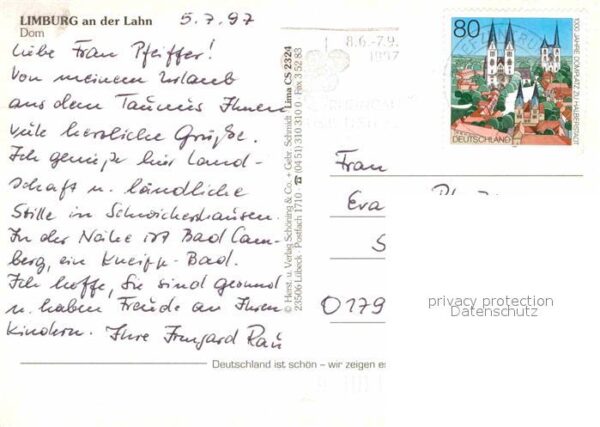 LIMBURG an der Lahn
Dom
5.7.97
Liebe Frau Pfeiffer!
Von meinem Urlaub
aus dem Taunus Ihnen
viele herzliche Grüße.
Ich genieße hier Land-
schaft u. ländliche
Stille in Schwickershausen.
In der Nähe ist Bad Cam-
berg, ein Kneipp-Bad.
Ich hoffe, Sie sind gesund
u. haben Freude an Ihren
Kindern. Ihre Irmgard Rau
© Herst. u. Verlag Schöning & Co. + Gebr. Schmidt Lima CS 2324
23506 Lübeck · Postfach 1710 · ☎ (04 51) 310 310 0 · Fax 3 52 83
8.6.-7.9.
1997
80
1000 JAHRE DOMPLATZ ZU HALBERSTADT
DEUTSCHLAND
Frau
Eva
S
0179
privacy protection
Datenschutz
Deutschland ist schön – wir zeigen es